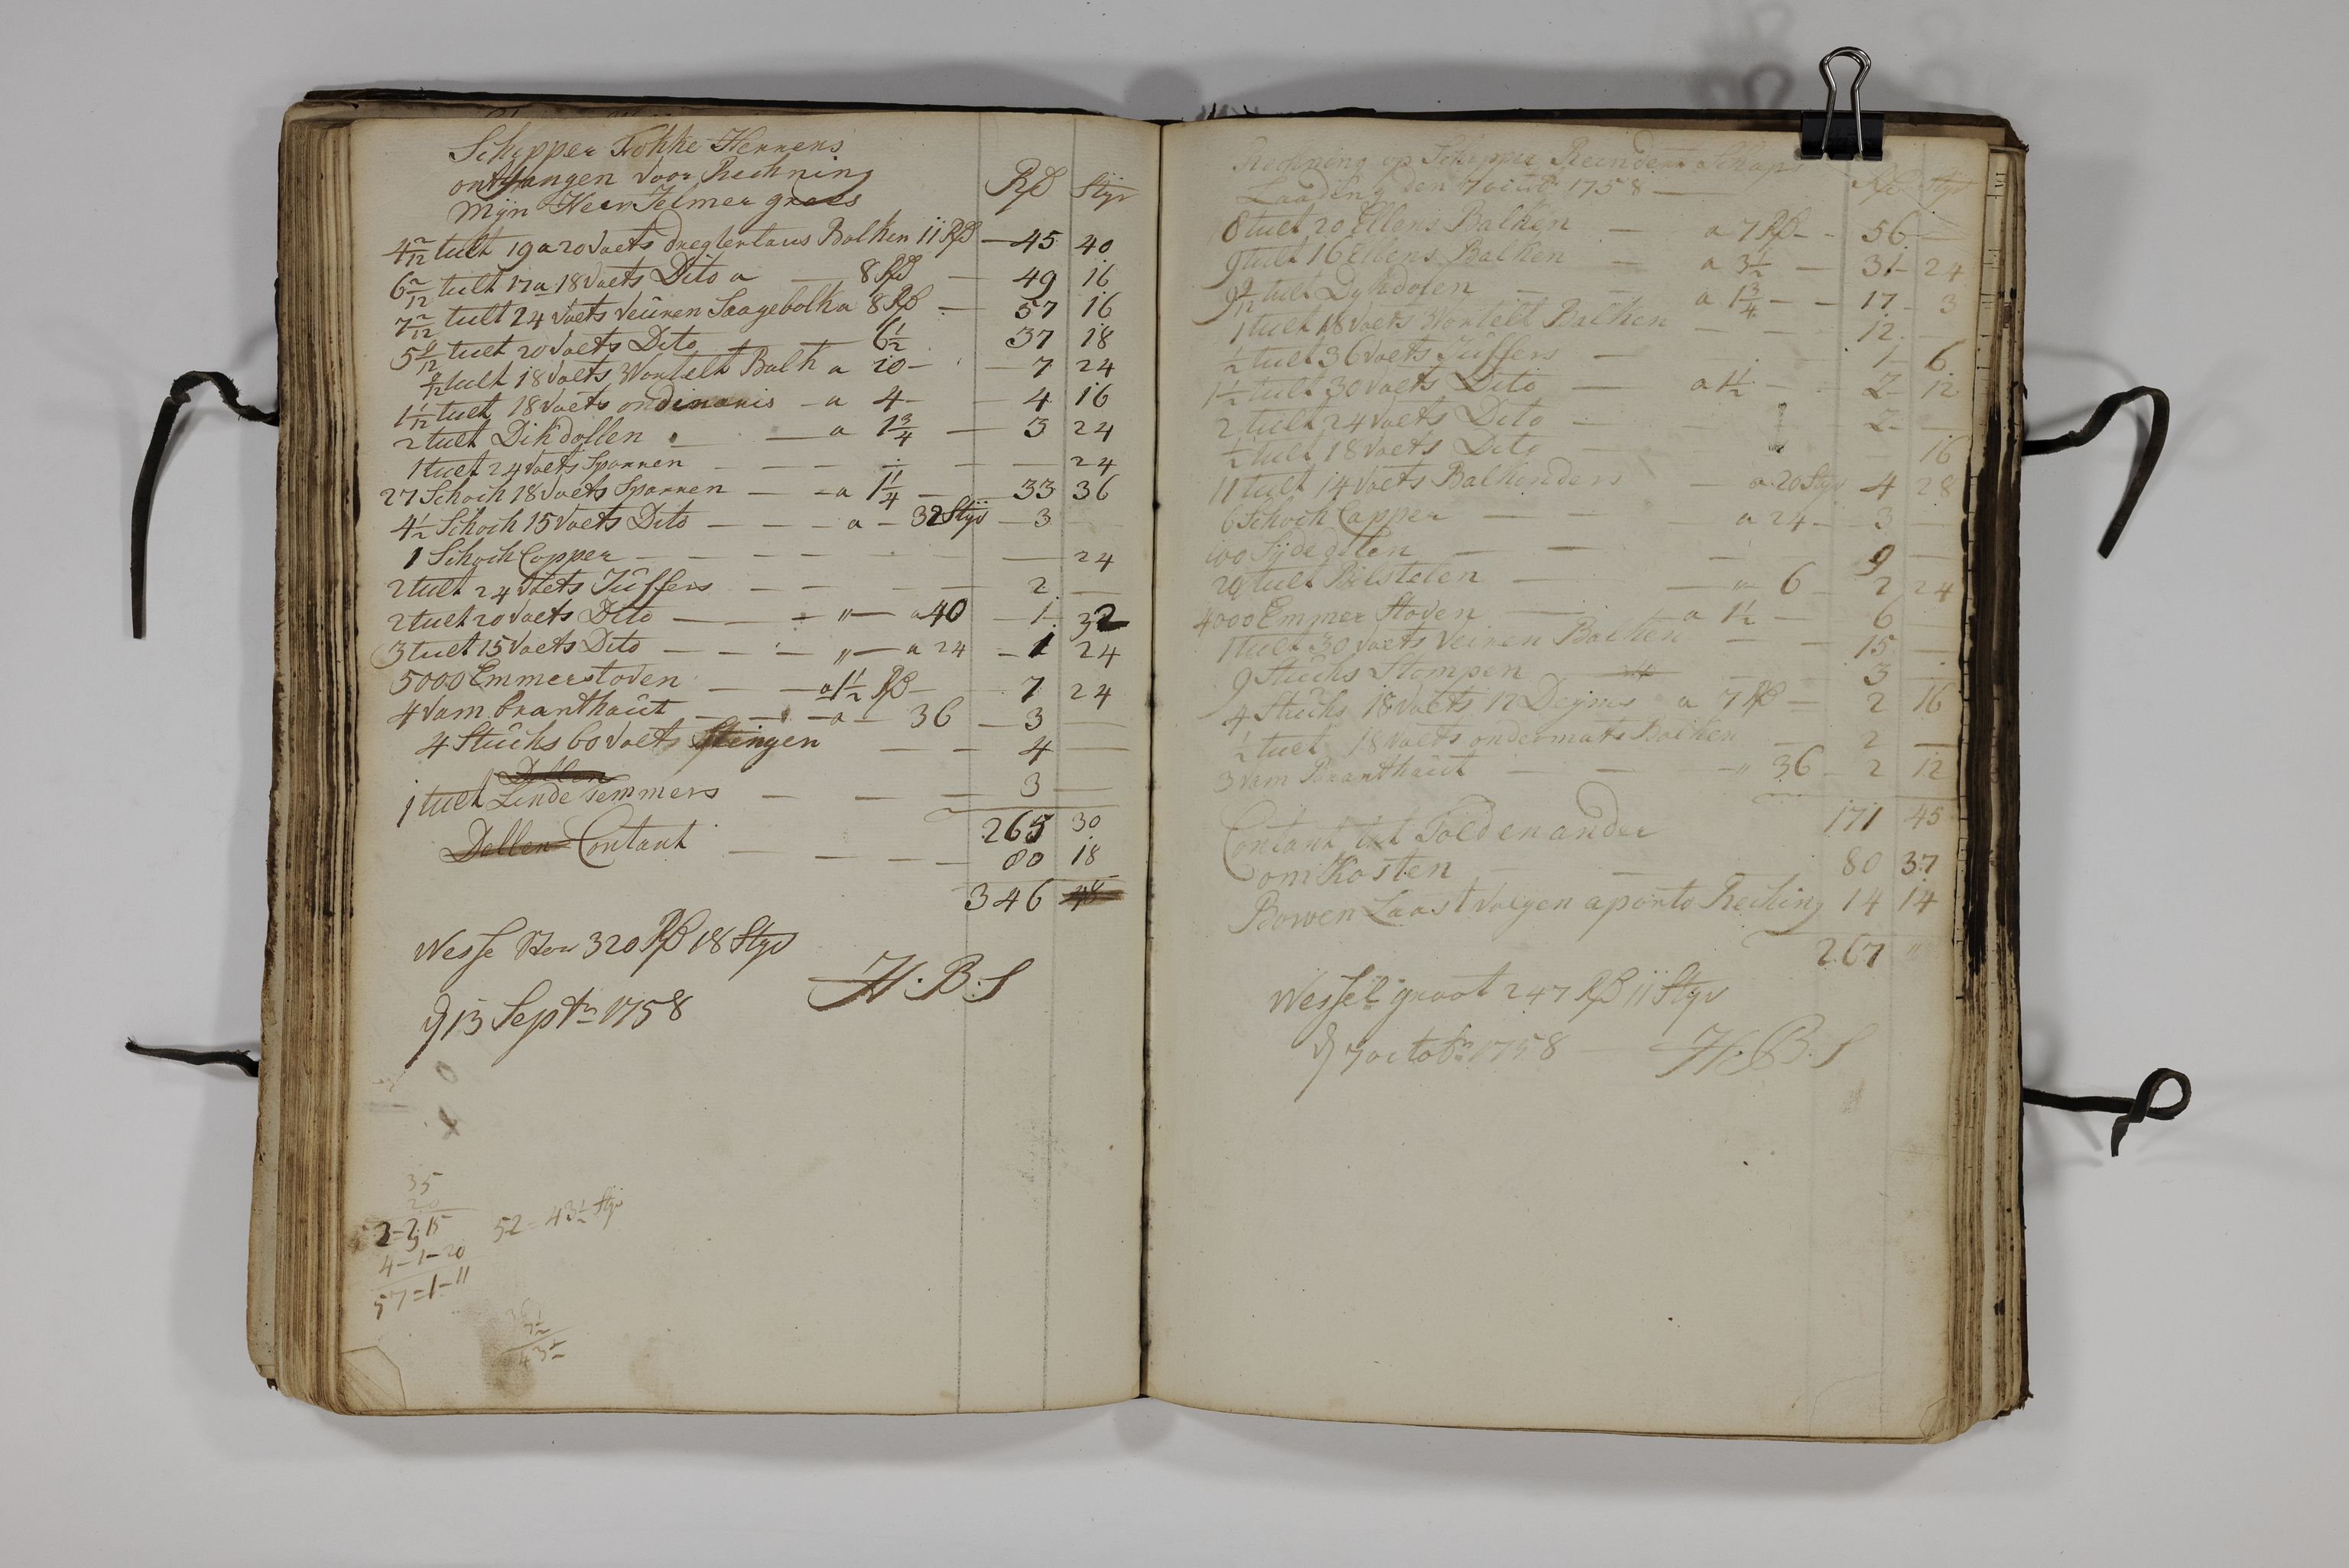 Schipper Fokke Herrens
ontfangen voor Rechning
Mijn Heer Jelmer grees
Rd Styv
4 2/12 tult 19 a 20 Voets dreglertaus Balken 11 Rd — 45 40
6 2/12 tult 17 a 18 Voets Dito a — 8 Rd — 49 16
7 2/12 tult 24 Voets veüren Saagebolk a 8 Rd — 57 16
5 9/12 tult 20 Voets Dito 6 1/2 37 18
9/12 tult 18 Voets Wortelt Balk a 10 — 7 24
1 1/12 tult 18 Voets ordinaris — a 4 — 4 16
2 tult Dikdollen — a 1 3/4 — 3 24
1 tult 24 Voets Sparren — — — 24
27 Schoch 18 Voets Sparren — a 1 1/4 — 33 36
4 1/2 Schoch 15 Voets Dito — — — a — 32 Styv — 3
1 Schoch Copper — — — — 24
2 tult 24 Voets Jüffers — — — 2 —
2 tult 20 Voets Dito — — — " — a 40 — 1 32
3 tult 15 Voets Dito — — — " — a 24 — 1 24
5000 Emmerstoven — a 1 1/2 Rd — 7 24
4 Vam branthaüt — — a — 36 — 3 —
4 Stüchs 60 Voets Stingen — — 4 —
Dellen
1 tult Linde Temmers — — — 3 —
265 30
Dellen Contant — — — — 80 18
346 48
Wesse Stou 320 Rd 18 Styv
H.B.S
d 13 Septr 1758
35
2-2 15
4-1-20
57=1-11
52=43 1/2 Styv
36
7 1/2
43 1/2
Regening op Schipper Reinder Schaps
Laading den 7 octob 1758 —
Rd Styv
8 tult 20 Ellens Balken — a 7 Rd — 56 —
9 tult 16 Ellens Balken — a 3 1/2 — 31 24
9 9/12 tult Dykdolen — a 1 3/4 — 17 3
1 tult 18 Voets Wortelt Balken — — 12 —
1/2 tult 36 Voets Jüffers — 1 6
1 1/2 tult 30 Voets Dito — a 1 1/2 — 2 12
2 tult 24 Voets Dito — 2 —
1/2 tult 18 Voets Dito — 16
11 tult 14 Voets Balkenders — a 20 Styv 4 28
6 Schoch Capper — — a 24 — 3 —
100 Sijdedelen — — — 9 —
20 tult Bilstelen — — " 6 2 24
4000 Emmer Stoven — a 1 1/2 — 6
1 tult 30 Voets Veiren Balken — — 15 —
9 Stüchs Stompen — 3 —
4 Stüchs 18 Voets 12 Deyms a 7 Rd — 2 16
1/2 tult 18 Voets ondermats Balken — 2 —
3 Vam Branthaüt — — " 36 — 2 12
171 45
Contant int Tolden ander
omKosten — — 80 37
Bowen Laast volgen aporto Reching 14 14
267 "
Wessel groot 247 Rd 11 Styv
d 7 octobr 1758 — H.B.S